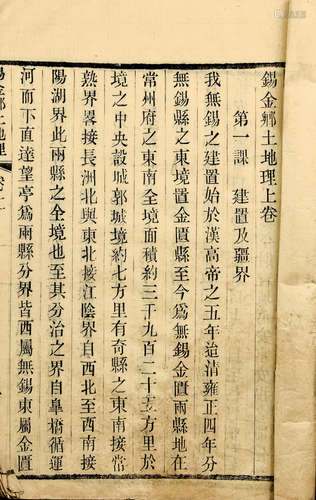 錫金鄉土地理上卷
第一課　建置及疆界
我無錫之建置始於漢高帝之五年迨清雍正四年分
無錫縣之東境置金匱縣至今爲無錫金匱兩縣地在
常州府之東南全境面積約三千九百二十五方里於
境之中央設城郭城境約七方里有奇縣之東南接常
熟界畧接長洲北與東北接江陰界自西北至西南接
陽湖界此兩縣之全境也至其分治之界自皐橋循運
河而下直達望亭爲兩縣分界皆西屬無錫東屬金匱
錫金鄉土地理